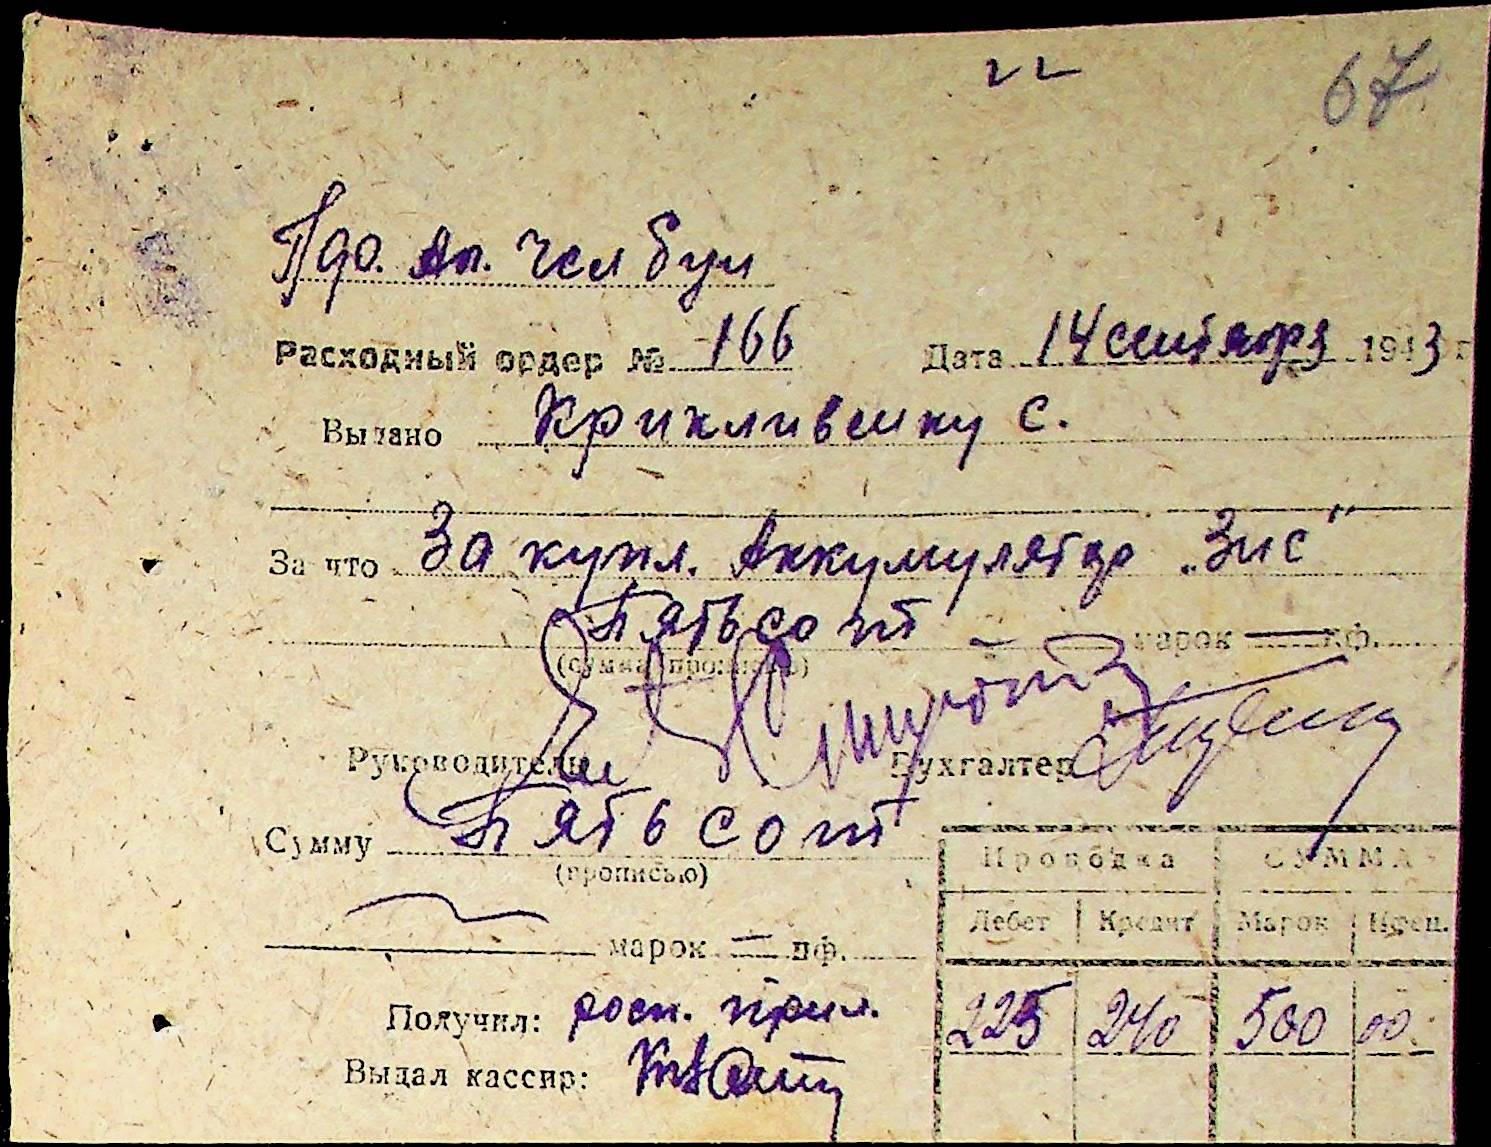 67
Пдо. Ап. Чел бул
Расходный ордер № 166 Дата 14 сентября 1943 г
Выдано Крикливенку С.
За что За купл. Аккумулятор „Зис"
Пятьсот — марок — пф.
(сумма прописью)
Руководитель Бухгалтер
Сумму Пятьсот
(прописью)
марок — пф.
Проводка СУММА
Дебет Кредит Марок Пфен.
225 240 500 00
Получил: росп. прил.
Выдал кассир: